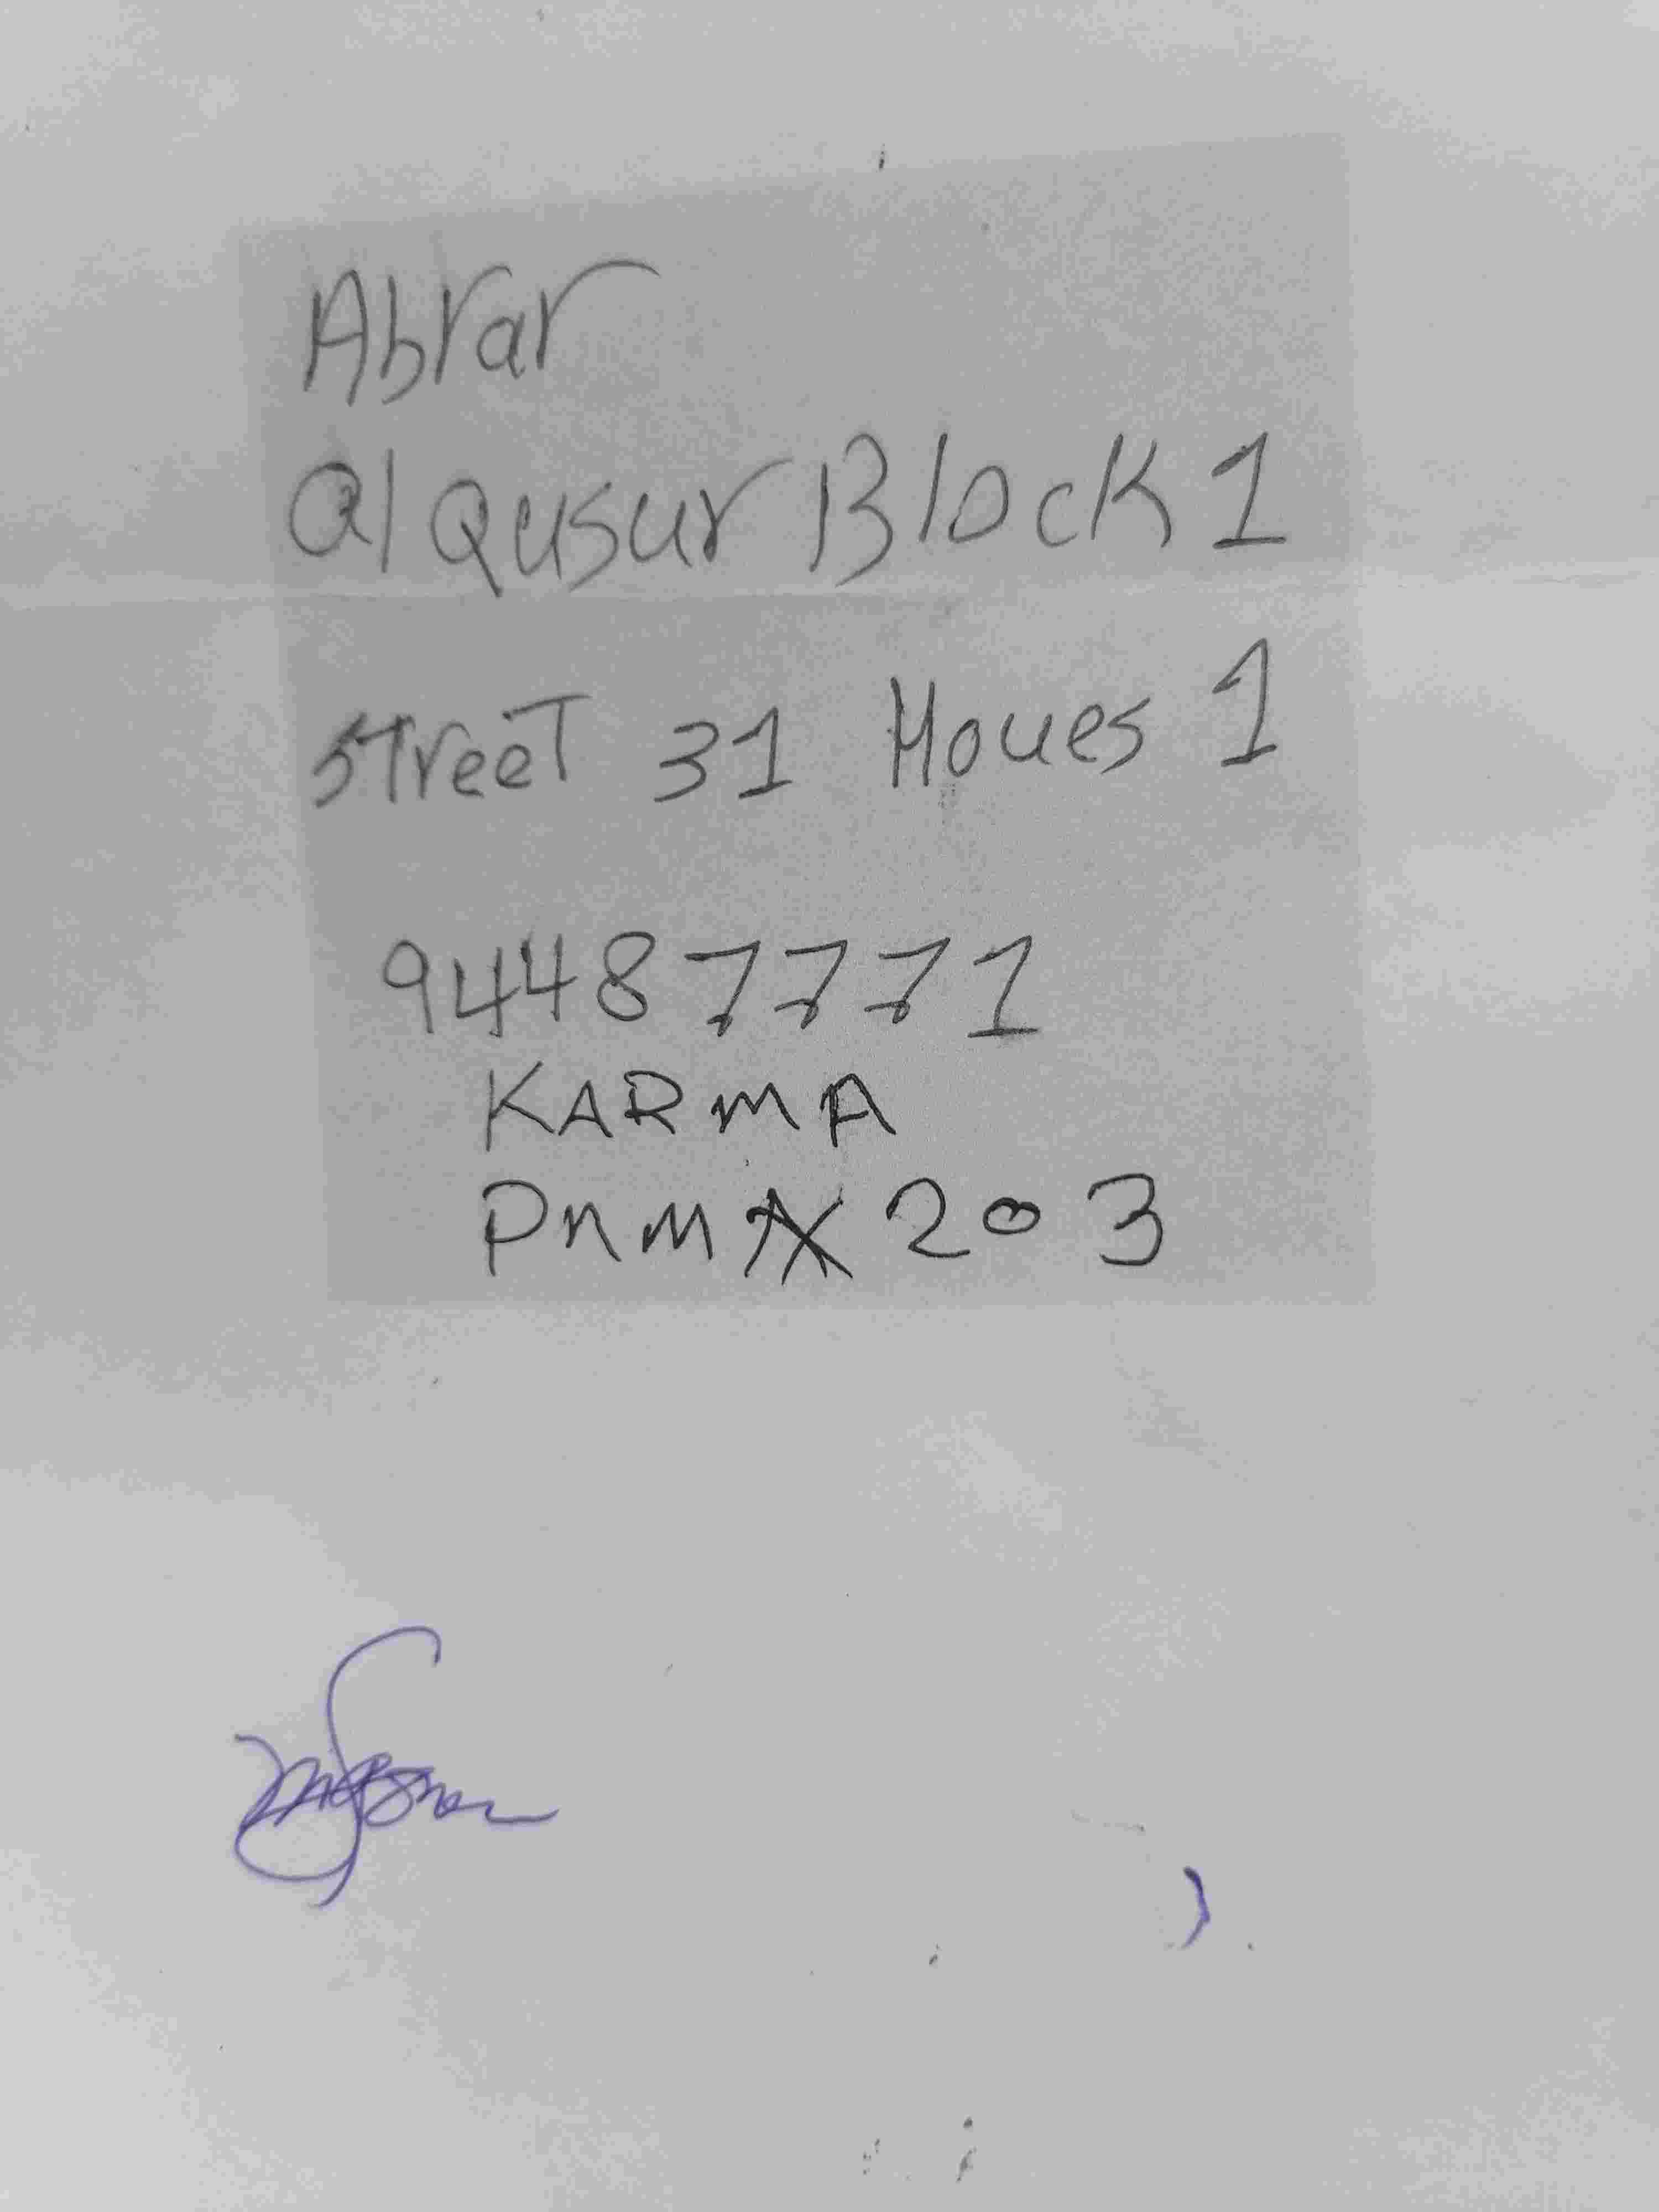 Abrar
al Qusur Block 1
street 31 Houes 1
94487771
KARMA
PNM 203